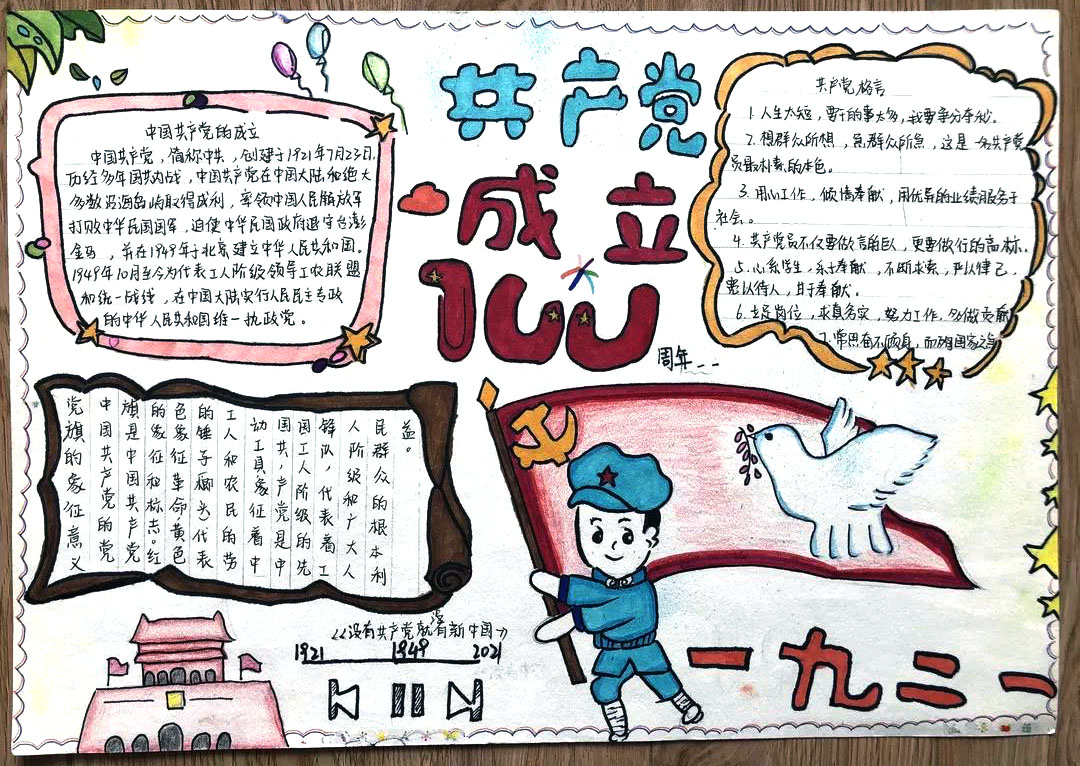 共产党
成立
100
周年...
中国共产党的成立
中国共产党，简称中共，创建于1921年7月23日，
历经多年国共内战，中国共产党在中国大陆和绝大
多数沿海岛屿取得成利，率领中国人民解放军
打败中华民国国军，迫使中华民国政府退守台澎
金马，并在1949年于北京建立中华人民共和国。
1949年10月至今为代表工人阶级领导工农联盟
和统一战线，在中国大陆实行人民民主专政
的中华人民共和国唯一执政党。
共产党格言
1.人生太短，要干的事太多，我要争分夺秒。
2.想群众所想，急群众所急，这是一名共产党
员最朴素的本色。
3.用心工作，倾情奉献，用优异的业绩服务于
社会。
4.共产党员不仅要做言的巨人，更要做行的高标。
5.心系学生，乐于奉献，不断求索，严以律己，
宽以待人，甘于奉献。
6.立足岗位，求真务实，努力工作，多做贡献
7.常思奋不顾身，而殉国家之急
党旗的象征意义
中国共产党的党
旗是中国共产党
的象征和标志。红
色象征革命黄色
的锤子、镰刀代表
工人和农民的劳
动工具象征着中
国共产党是中
国工人阶级的先
锋队，代表着工
人阶级和广大人
民群众的根本利
益。
《没有共产党就没有新中国》
1921 1949 2021
一九二一